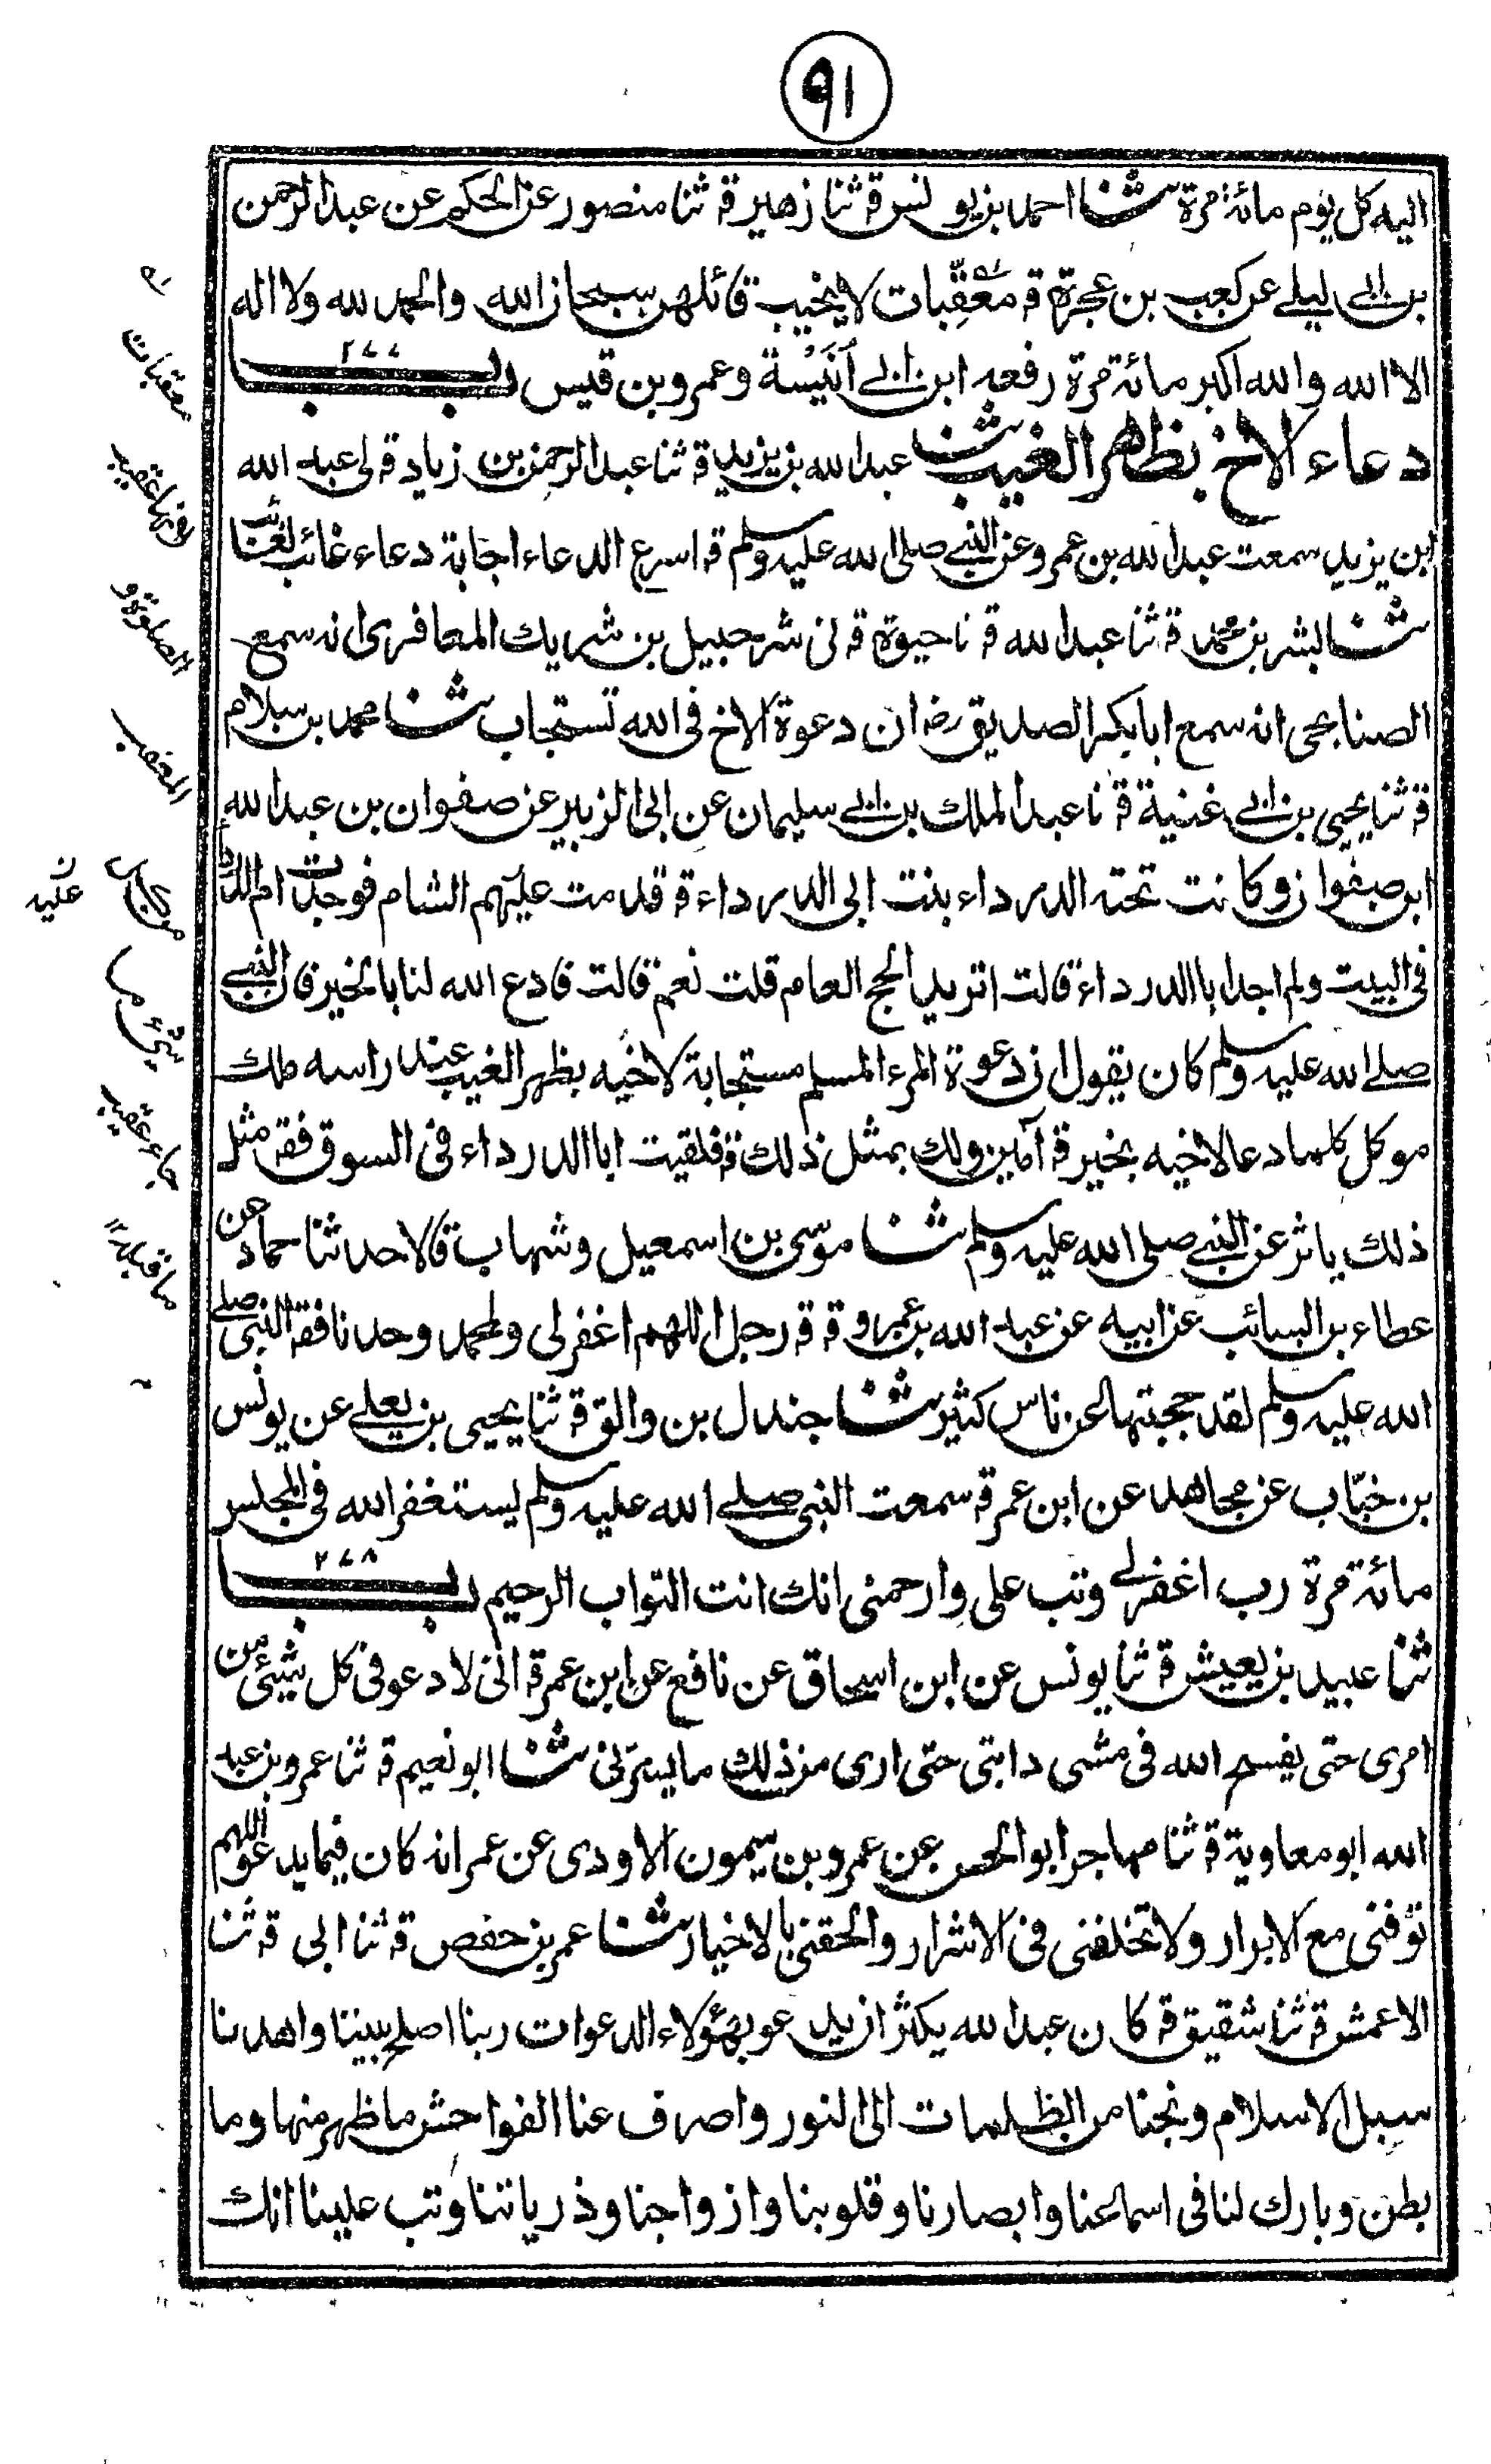 ٩١
اليه كل يوم مائة مرة ثنا احمد بن يونس قـ ثنا زهير قـ ثنا منصور عن الحكم عن عبد الرحمن
بن ابى ليلے عن كعب بن عجرة قـ معقبات لا يخيب قائلهن سبحان الله والحمد لله ولا اله
الا الله والله اكبر مائة مرة رفعه ابن ابى انيسة وعمرو بن قيس باب ٢٧٧
دعاء الاخ بظهر الغيب ثنا عبد الله بن يزيد قـ ثنا عبد الرحمن بن زياد قـ لى عبد الله
ابن يزيد سمعت عبد الله بن عمرو عن النبى صلى الله عليه وسلم قـ اسرع الدعاء اجابة دعاء غائب لغائب
ثنا بشر بن محمد قـ ثنا عبد الله قـ نا حيوة قـ نى شرحبيل بن شريك المعافرى انه سمع
الصنابحى انه سمع ابا بكر الصديق رض ان دعوة الاخ فى الله تستجاب ثنا محمد بن سلام
قـ ثنا يحيى بن ابى غنية قـ نا عبد الملك بن ابى سليمان عن ابى الزبير عن صفوان بن عبد الله
ابن صفوان وكانت تحته الدرداء بنت ابى الدرداء قـ قدمت عليهم الشام فوجدت ام الدرداء
فى البيت ولم اجد ابا الدرداء قالت اتريد الحج العام قلت نعم قالت فادع الله لنا بالخير فان النبى
صلے الله عليه وسلم كان يقول ان دعوة المرء المسلم مستجابة لاخيه بظهر الغيب عند راسه ملك
موكل كلما دعا لاخيه بخير قـ آمين ولك بمثل ذلك قـ فلقيت ابا الدرداء فى السوق فقـ مثل
ذلك ياثر عن النبى صلى الله عليه وسلم ثنا موسى بن اسمعيل وشهاب قالا حدثنا حماد عن
عطاء بن السائب عن ابيه عن عبد الله بن عمرو قـ قـ رجل اللهم اغفر لى ولمحمد وحدنا فقـ النبى صلے
الله عليه وسلم لقد حجبتها عن ناس كثير ثنا جندل بن والق قـ ثنا يحيى بن يعلے عن يونس
بن خبّاب عن مجاهد عن ابن عمر قـ سمعت النبى صلے الله عليه وسلم يستغفر الله فى المجلس
مائة مرة رب اغفرلے وتب على وارحمنى انك انت التواب الرحيم باب ٢٧٨
ثنا عبيد بن يعيش قـ ثنا يونس عن ابن اسحاق عن نافع عن ابن عمر قـ انى لادعو فى كل شيئ من
امرى حتى يفسح الله فى مشى دابتى حتى ارى من ذلك ما يسرّنى ثنا ابو نعيم قـ ثنا عمرو بن عبد
الله ابو معاوية قـ ثنا مهاجر ابو الحسن عن عمرو بن ميمون الاودى عن عمر انه كان فيما يدعو اللهم
توفنى مع الابرار ولا تخلفنى فى الاشرار والحقنى بالاخيار ثنا عمر بن حفص قـ ثنا ابى قـ ثنا
الاعمش قـ ثنا شقيق قـ كان عبد الله يكثر ان يدعو بهؤلاء الدعوات ربنا اصلح بيننا واهدنا
سبل الاسلام ونجنا من الظلمات الى النور واصرف عنا الفواحش ما ظهر منها وما
بطن وبارك لنا فى اسماعنا وابصارنا وقلوبنا وازواجنا وذرياتنا وتب علينا انك
له
معقبات
لانها عقيب
الصلوة و
المعقب
من كل
شيء ما
جاء عقيب
ما قبله